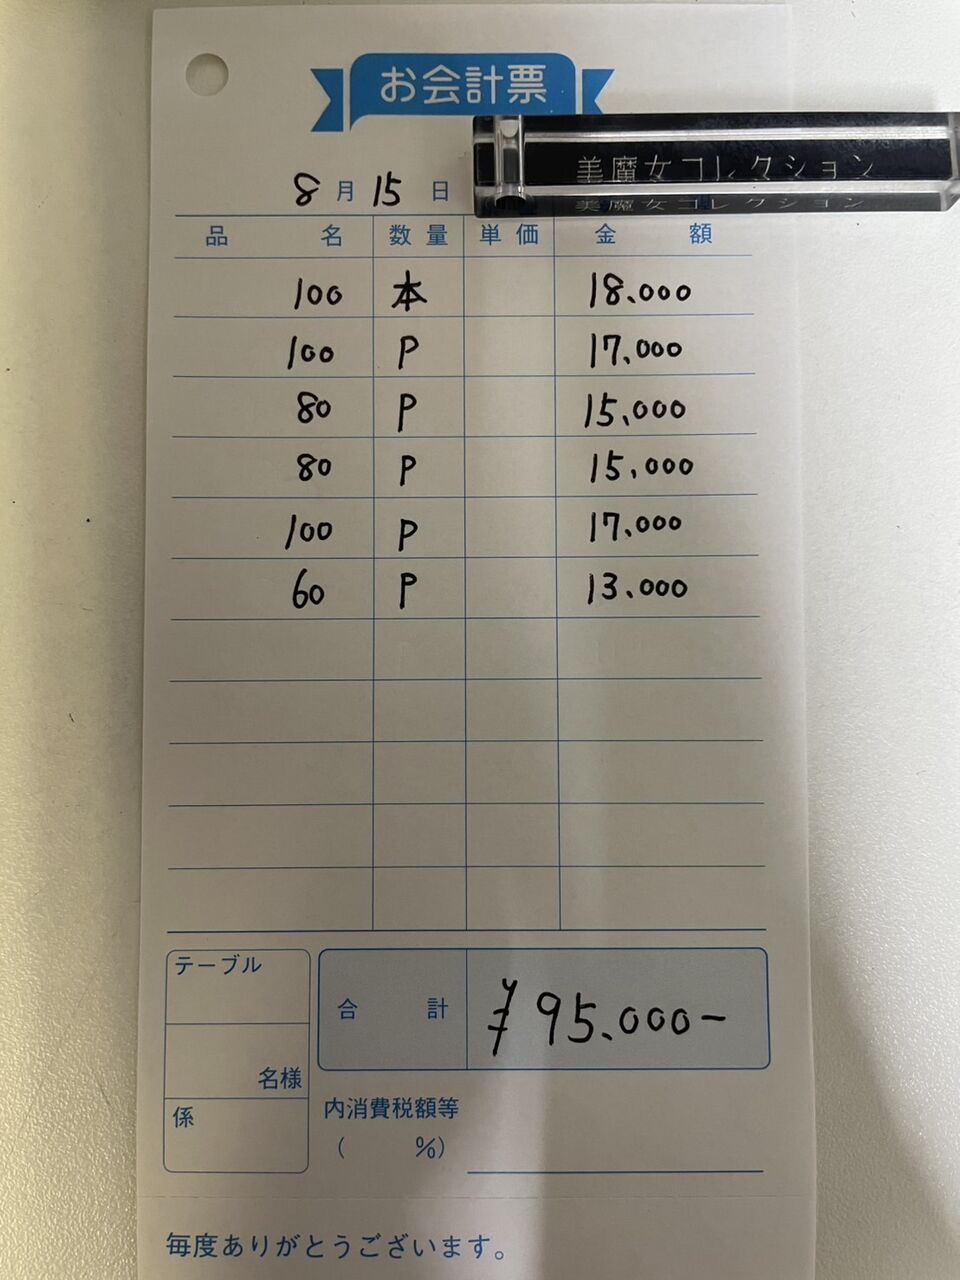 お会計票
美魔女コレクション
美魔女コレクション
8月15日
品名 数量 単価 金額
100 本 18.000
100 P 17.000
80 P 15.000
80 P 15.000
100 P 17.000
60 P 13.000
テーブル
合計 ¥95.000-
名様
係
内消費税額等
( %)
毎度ありがとうございます。